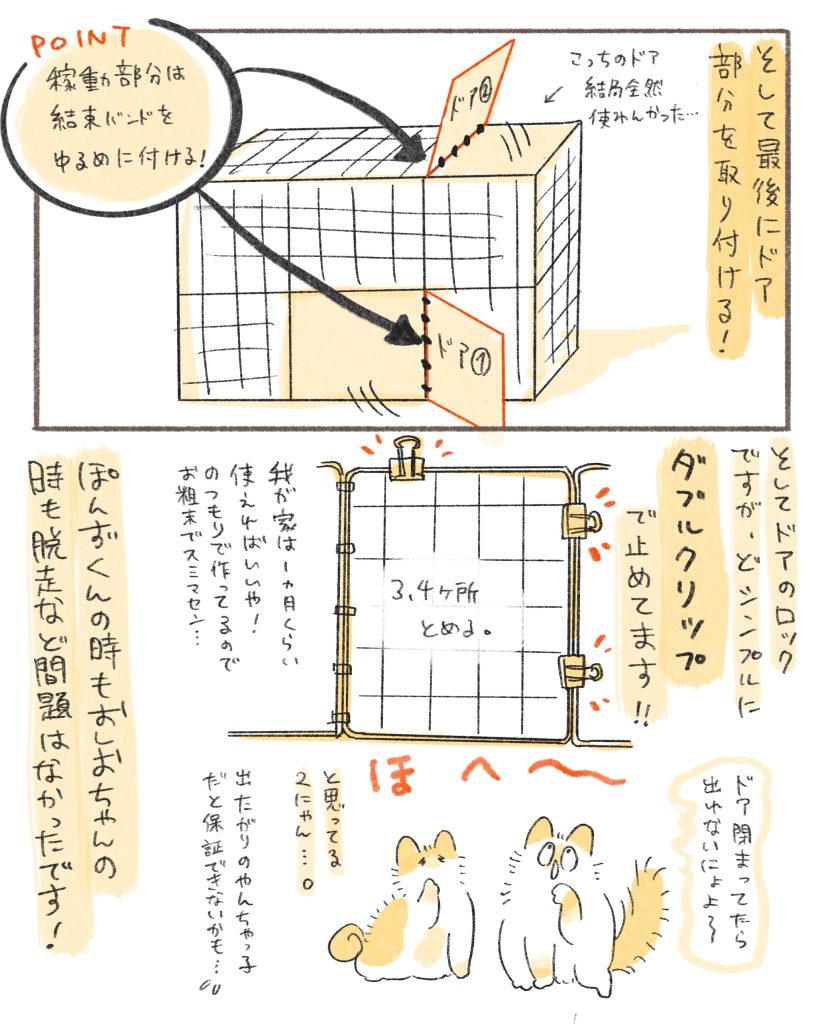 そして最後にドア
部分を取り付ける！
POINT
稼動部分は
結束バンドを
ゆるめに付ける！
こっちのドア
結局全然
使わんかった…
ドア②
ドア①
そしてドアのロック
ですが、どシンプルに
ダブルクリップ
で止めてます!!
3、4ヶ所
とめる。
我が家は1ヵ月くらい
使えればいいや！
のつもりで作ってるので
お粗末でスミマセン…
ぽんずくんの時もおしおちゃんの
時も脱走など問題はなかったです！
ドア閉まってたら
出れないにょよ〜
ほへ〜
と思ってる
2にゃん…。
出たがりのやんちゃっ子
だと保証できないかも…